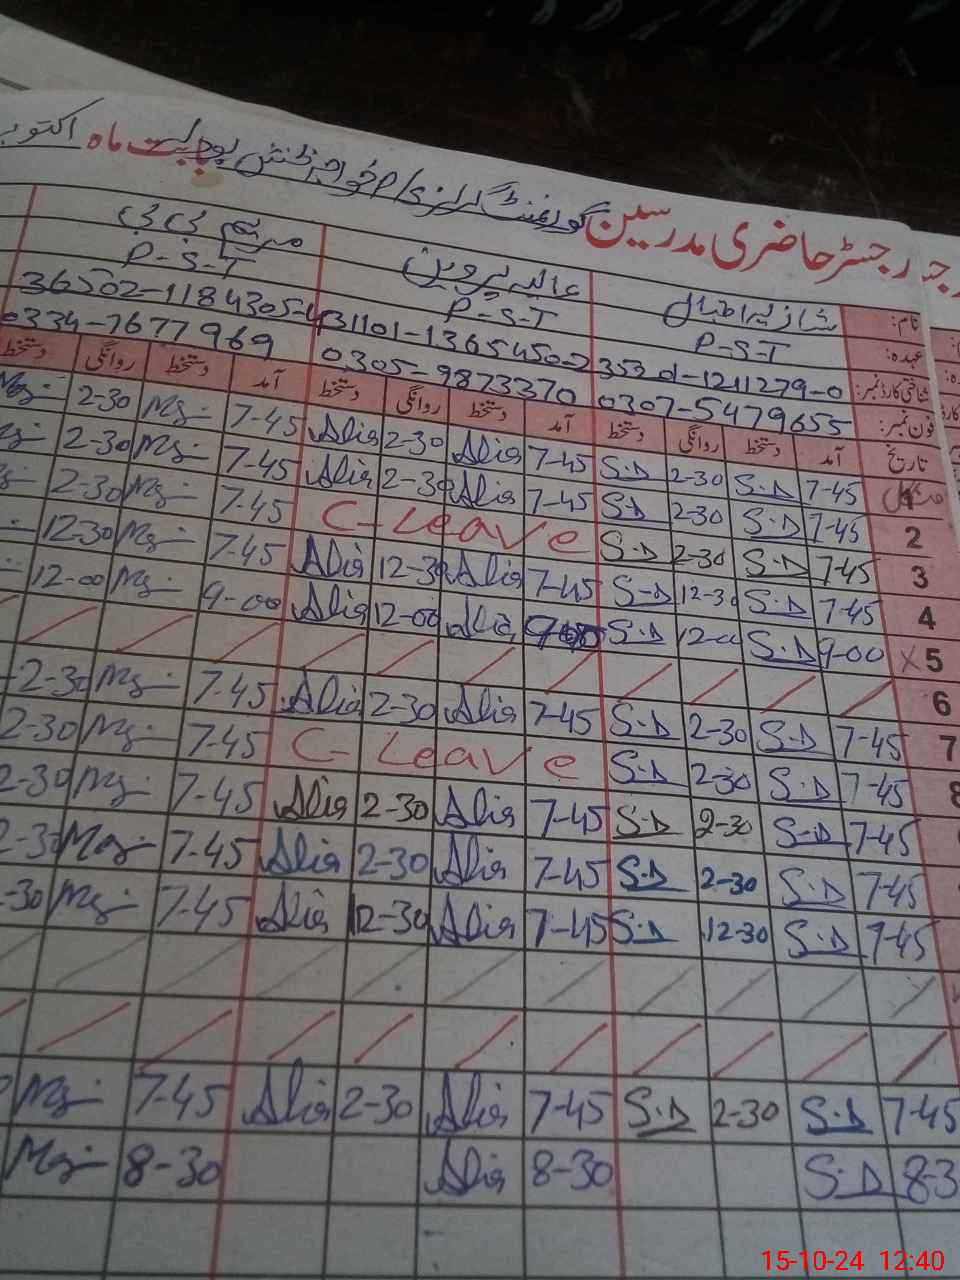 رجسٹر حاضری مدرسین گورنمنٹ گرلز بابت ماہ اکتوبر
نام: شازیہ اقبال عالیہ پروین مریم بی بی
عہدہ: P-S-T P-S-T P-S-T
شناختی کارڈ نمبر: 35301-1211279-0 31101-1365450-2 36502-1184305-4
فون نمبر: 0307-5479655 0305-9873370 0334-7677969
تاریخ آمد دستخط روانگی دستخط آمد دستخط روانگی دستخط آمد دستخط روانگی دستخط
1 7-45 S.D 2-30 S.D 7-45 Alia 2-30 Alia 7-45 2-30
2 7-45 S.D 2-30 S.D 7-45 Alia 2-30 Alia 7-45 2-30
3 7-45 S.D 2-30 S.D C-Leave 7-45 2-30
4 7-45 S.D 12-30 S.D 7-45 Alia 12-30 Alia 7-45 12-30
5 9-00 S.D 12-00 S.D Alia 12-00 Alia 9-00 12-00
6
7 7-45 S.D 2-30 S.D 7-45 Alia 2-30 Alia 7-45 2-30
8 7-45 S.D 2-30 S.D C-Leave 7-45 2-30
7-45 S.D 2-30 S.D 7-45 Alia 2-30 Alia 7-45 2-30
7-45 S.D 2-30 S.D 7-45 Alia 2-30 Alia 7-45 2-30
7-45 S.D 12-30 S.D 7-45 Alia 12-30 Alia 7-45 -30
7-45 S.D 2-30 S.D 7-45 Alia 2-30 Alia 7-45
8-3 S.D 8-30 Alia 8-30
15-10-24 12:40